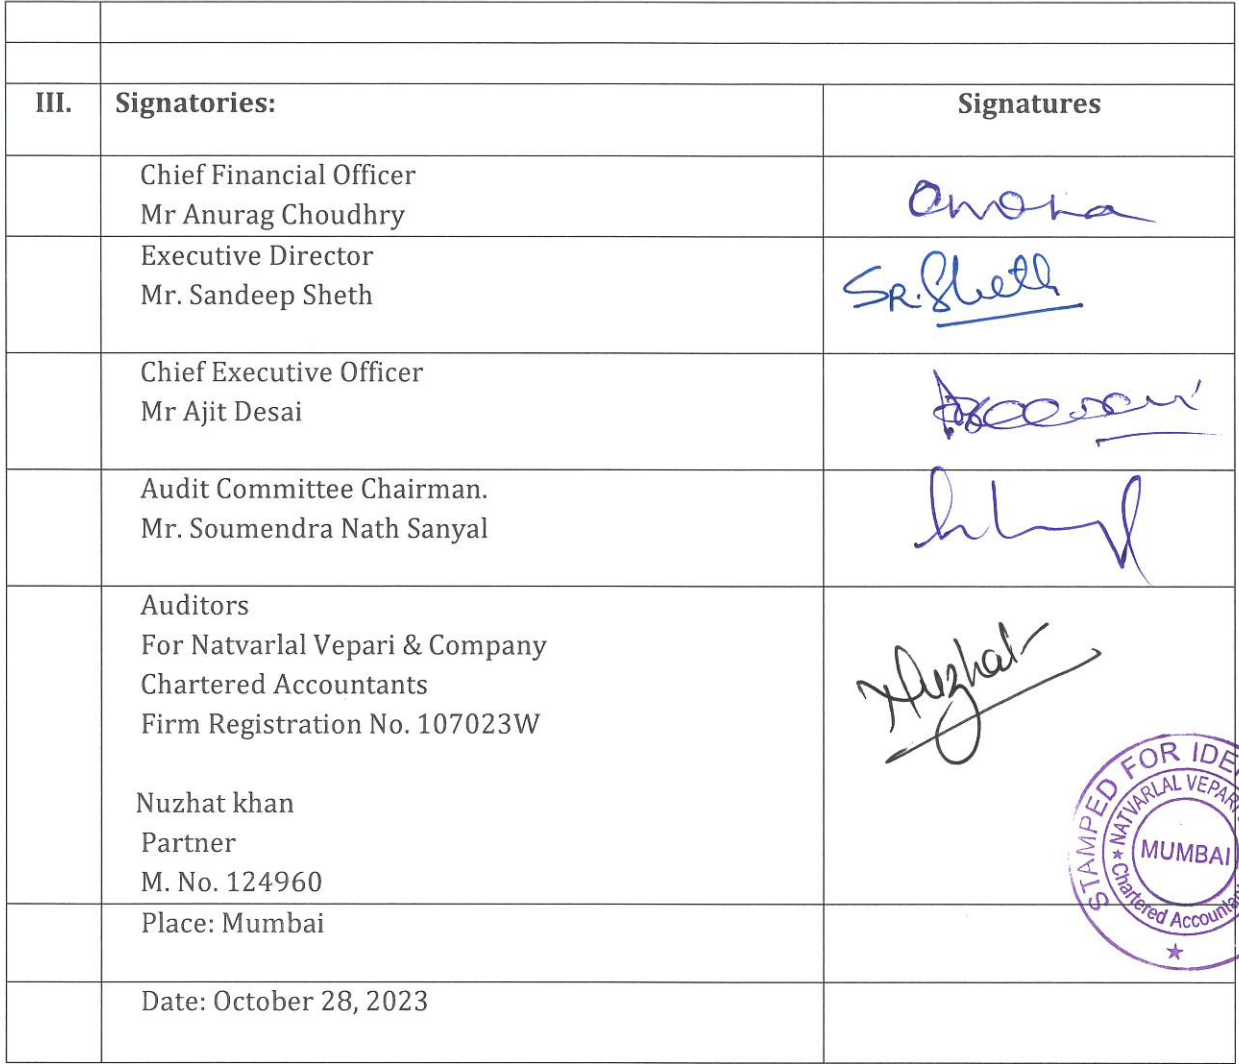 III. Signatories: Signatures
Chief Financial Officer
Mr Anurag Choudhry
Executive Director
Mr. Sandeep Sheth
SR. Sheth
Chief Executive Officer
Mr Ajit Desai
Audit Committee Chairman.
Mr. Soumendra Nath Sanyal
Auditors
For Natvarlal Vepari & Company
Chartered Accountants
Firm Registration No. 107023W
Nuzhat
Nuzhat khan
Partner
M. No. 124960
STAMPED FOR
NATVARLAL
MUMBAI
Chartered
Place: Mumbai
Date: October 28, 2023